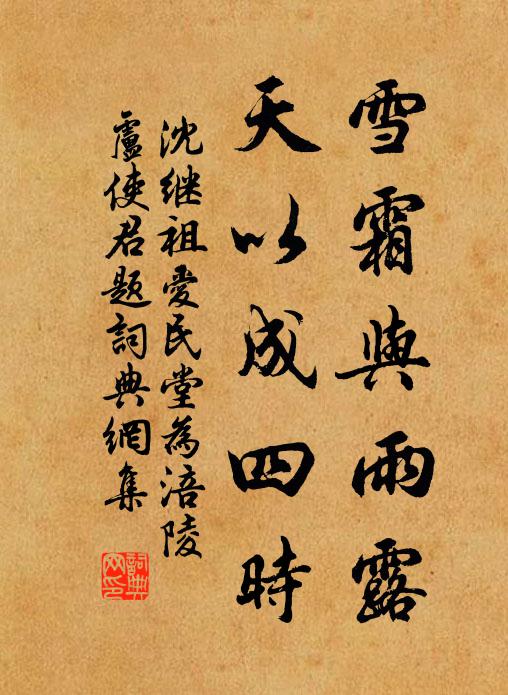 雪霜與雨露
天以成四時
沈继祖愛民堂為涪陵
盧使君题詞典網集
詞典网印